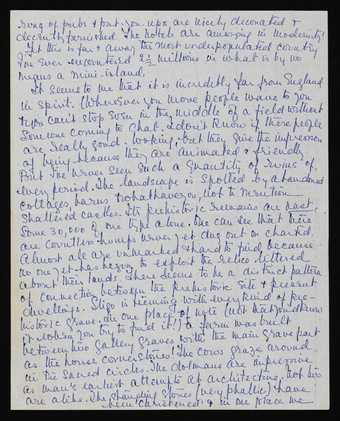 sung of pubs & put-you-ups are nicely decorated &
decently furnished. The hotels are amusing in modernity!
Yet this is far & away the most underpopulated country
I've ever encountered 2½ millions in what is by no
means a mini-island.
It seems to me that it is incredibly far from England
in spirit. Wherever you move people wave to you
& you can't stop even in the middle of a field without
someone coming to chat. I don't know if these people
are really good-looking, but they give the impression
of being because they are animated & friendly
But I've never seen such a quantity of ruins of
every period. The landscape is spotted by abandoned
cottages, barns & whathaveyou, not to mention
shattered castles. Its prehistoric remains are vast.
Some 30,000 of one type alone. One can see that there
are countless humps never yet dug out or charted.
Almost all are unmarked & hard to find, because
no one yet has begun to exploit the relics littered
about their lands. There seems to be a distinct pattern
of connection between the prehistoric site & present
dwellings. Sligo is teeming with every kind of pre-
historic grave. In one place of note (but
it looking you try to find it!) a farm was built
between two gallery graves with the main grave part
as the house cornerstones! The cows graze around
in the sacred circles. The dolmens are impressive
as man's earliest attempts at architecture, not two
are alike. The standing stones (very phallic) have
been 'christened' & in one place we